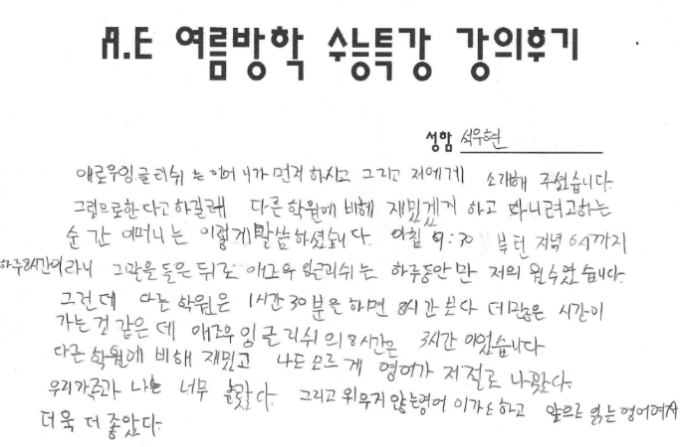 A.E 여름방학 수능특강 강의후기
성함 석우현
애로우잉글리쉬 는 어머니가 먼저 하시고 그리고 저에게 소개해 주셨습니다.
그룹으로한다고하길래 다른학원에 비해 재밌겠거 하고 다니려고하는
순간 어머니는 이렇게 말씀하셨습니다. 아침 9:30 부터 저녁 6시까지
하루8시간이라니 그말을 들은 뒤로 애로우 잉글리쉬는 하루동안만 저의 원수였습니다.
그런데 다른학원은 1시간30분은 하면 8시간보다 더많은 시간이
가는것 같은데 애로우잉글리쉬의 8시간은 3시간 이었습니다.
다른 학원에 비해 재밌고 나도모르게 영어가 저절로 나왔다.
우리가족과 나는 너무 놀랐다. 그리고 외우지 않는영어 이기도하고 앞으로 읽는영어여서
더욱 더 좋았다.